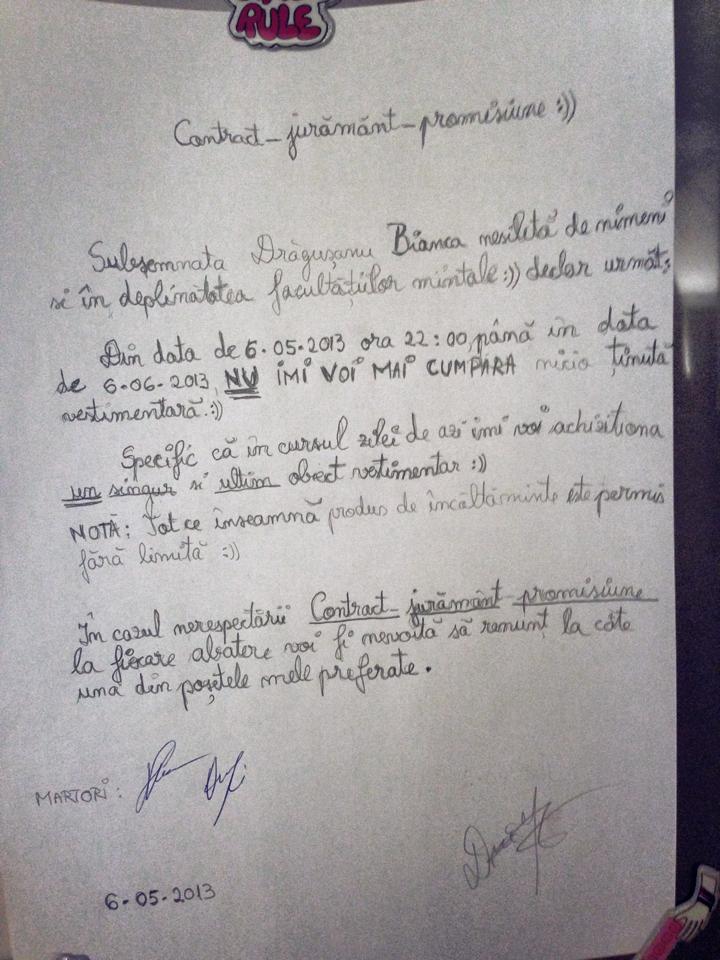 RULE
Contract-jurământ-promisiune :))
Subsemnata Drăgușanu Bianca nesilită de nimeni
si în deplinătatea facultățiilor mintale :)) declar următ:
Din data de 6.05.2013 ora 22:00 până în data
de 6.06.2013, NU IMI VOI MAI CUMPĂRA nicio ținută
vestimentară :))
Specific că în cursul zilei de azi imi voi achisitiona
un singur si ultim obect vestimentar :))
NOTĂ: Tot ce înseamnă produs de încăltăminte este permis
fără limită :))
În cazul nerespectării Contract-jurământ-promisiune
la fiecare abatere voi fi nevoită să renunț la câte
una din poșetele mele preferate.
MARTORI:
6-05-2013